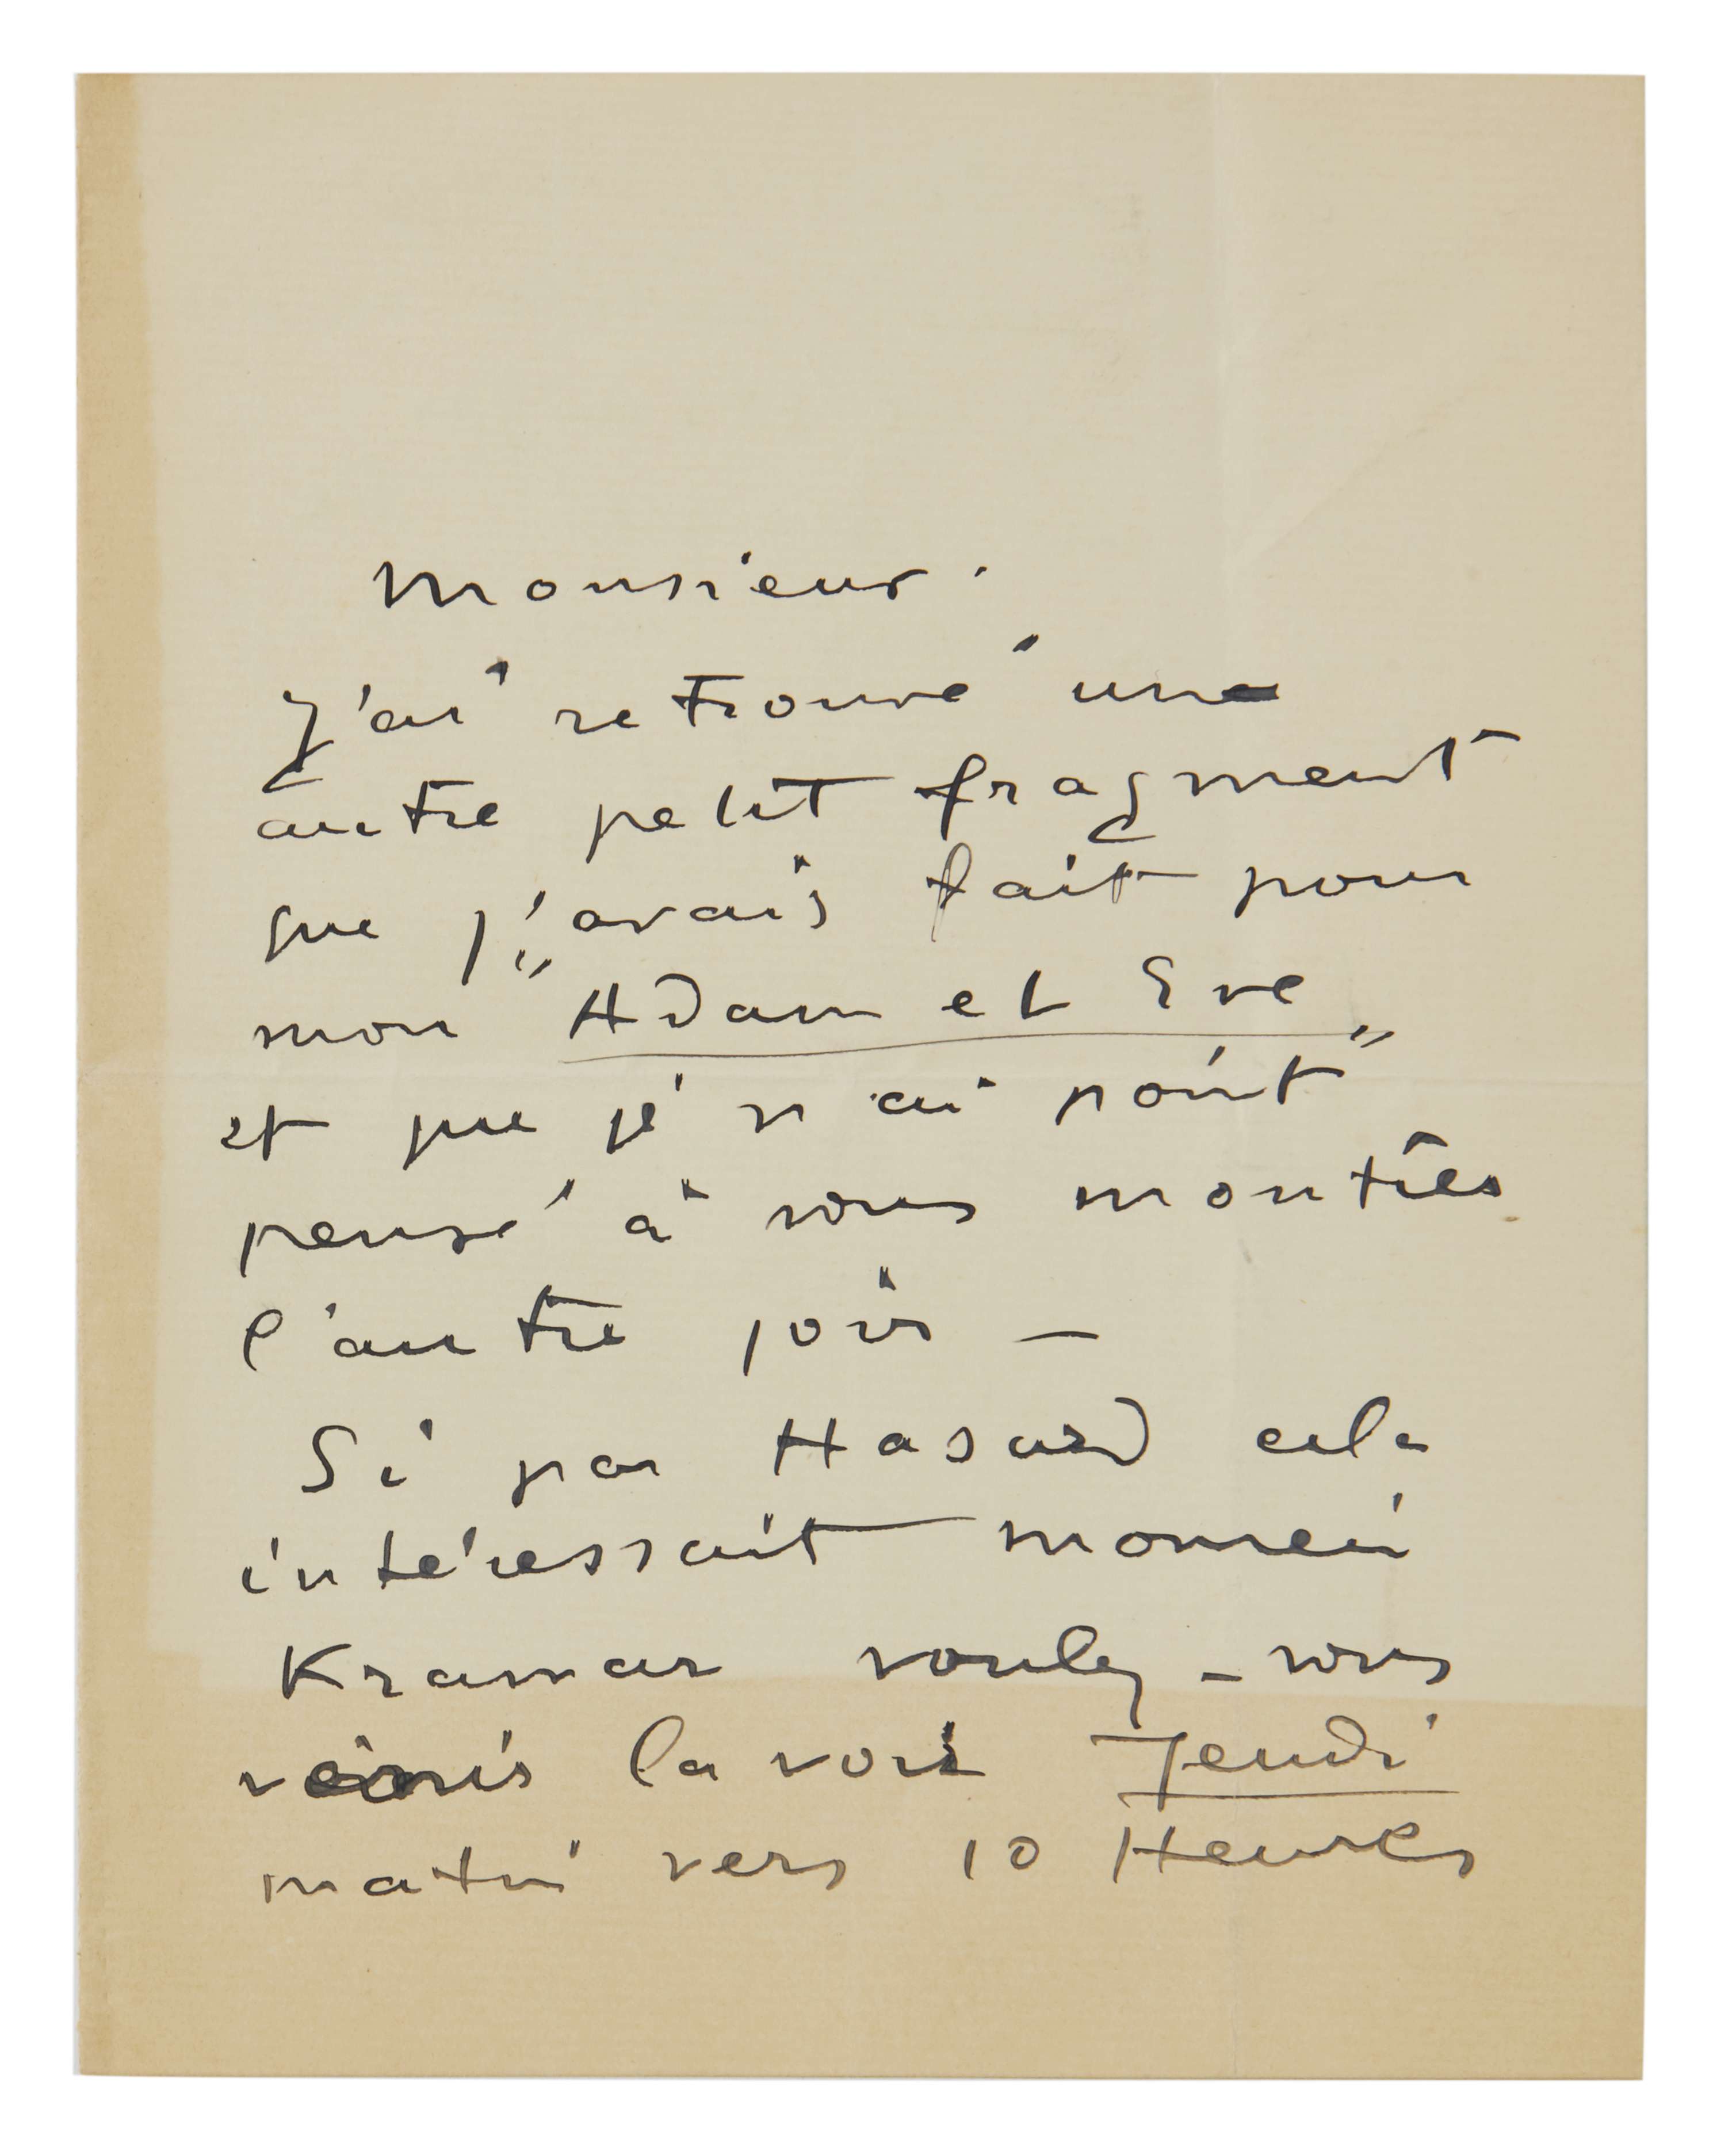 Monsieur.
J'ai retrouvé une
autre petit fragment
que j'avais fait pour
mon "Adam et Eve"
et que je n'ai point
pensé à vous montrer
l'autre jour —
Si par Hasard cela
intéressait
Kramar voulez-vous
venir la voir Jeudi
matin vers 10 Heures